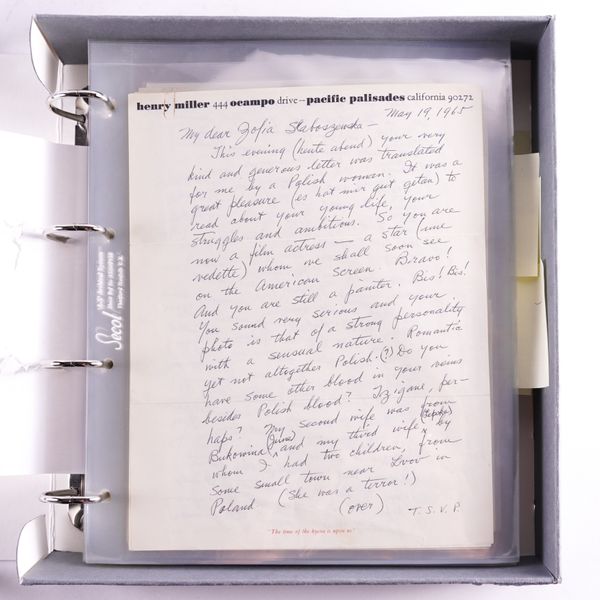 henry miller 444 ocampo drive — pacific palisades california 90272
May 19, 1965
My dear Zofia Slaboszewska —
This evening (heute abend) your very
kind and generous letter was translated
for me by a Polish woman. It was a
great pleasure (es hat mir gut getan) to
read about your young life, your
struggles and ambitions. So you are
now a film actress — a star (une
vedette) whom we shall soon see
on the American Screen. Bravo!
And you are still a painter. Bis! Bis!
You sound very serious and your
photo is that of a strong personality
with a sensual nature. Romantic
yet not altogether Polish. (?) Do you
have some other blood in your veins
besides Polish blood? Tzigane, per-
haps? My second wife was from
Bukowina (June) and my third wife, (Lepska) by
whom I had two children, from
some small town near Lvov in
Poland (She was a terror!)
(over) T.S.V.P.
"The time of the hyena is upon us"
Secol